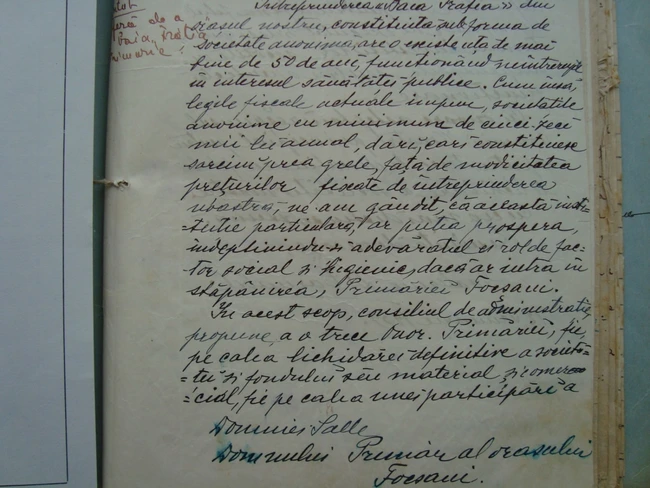 ală de a
Baia, str.
Primărie
Întreprinderea „Baia Trafia” din
orașul nostru, constituită sub forma de
societate anonimă, are o existență de mai
bine de 50 de ani, funcționând neîntrerupt
în interesul sănătăței publice. Cum însă,
legile fiscale actuale impun, societăților
anonime cu minimum de cinci-zeci
mii lei anual, dări, cari constituiesc
sarcini prea grele, față de modicitatea
prețurilor fixate de întreprinderea
noastră, ne am gândit, că această insti-
=tuție particulară, ar putea prospera,
îndeplinindu-și adevăratul ei rol de fac-
tor social și higienic, dacă ar intra în
stăpânirea, Primăriei Focșani.
În acest scop, consiliul de administrație,
propune, a o trece Onor. Primăriei, fie,
pe calea lichidărei definitive a societă-
=ței și fondului său material și comer
=cial, fie pe calea unei participări a
Domniei Sale
Domnului Primar al orașului
Focșani.